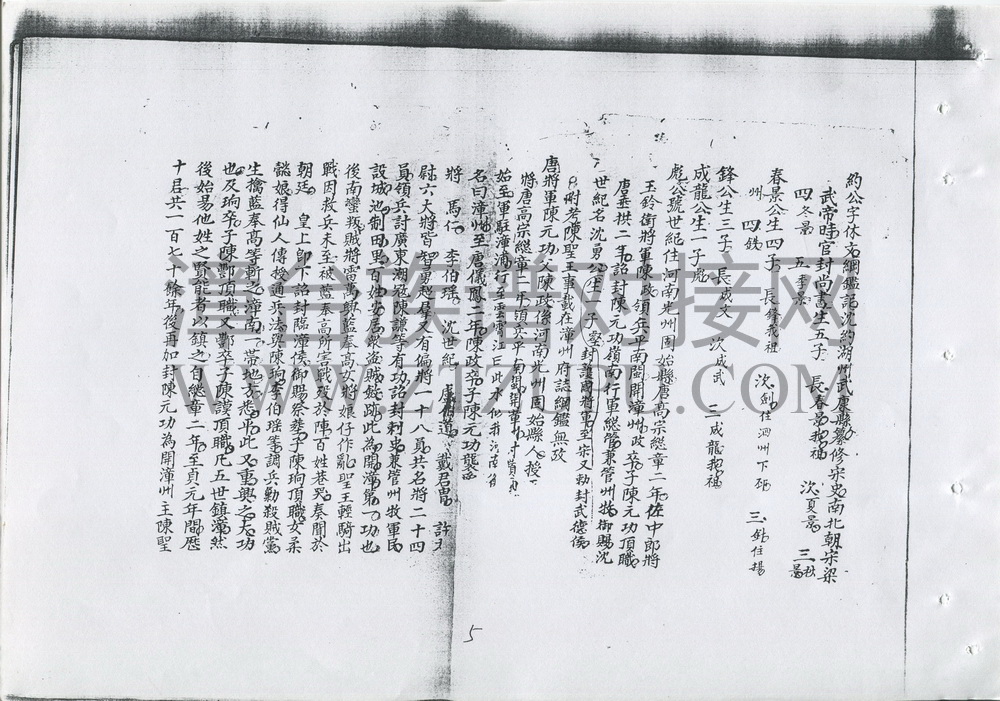 約公字休文綱鑑記沈約湖州武康縣纂修宋史南北朝宋梁
武帝時官封尚書生五子 長春景我祖 次夏景 三秋景
四冬景 五季景
春景公生四子 長鋒我祖 次劍住泗州下邳 三鈎住揚
州 四錢
鋒公生三子 長成文 次成武 三成龍我祖
成龍公生一子彪
彪公號世紀住河南光州固始縣唐高宗總章二年佐中郎將
玉鈐衛將軍陳政領兵平南閩開漳州政卒子陳元功頂職
唐垂拱二年詔封陳元功嶺南行軍總管兼管州牧御賜沈
世紀名沈勇公生二子 封護國將軍至宋又勅封武德侯
附考陳聖王事載在漳州府誌綱鑑無改
唐將軍陳元功父陳政係河南光州固始縣人授
將唐高宗總章二年領兵平南閩開漳
始至軍駐漳浦行至雲霄江曰此水似我河南
名曰漳州至唐儀鳳二年陳政卒子陳元功襲
將 馬仁 李伯瑤 沈世紀 戴君胄 許天
尉六大將皆智勇超羣又有偏將一十八員共名將二十四
員領兵討廣東潮寇陳謙等有功詔封刺史兼管州牧軍民
設城池制田里百姓安居衆盜賊歛跡此為開漳第一功也
後南蠻叛賊將雷萬興藍奉高次將娘仔作亂聖王輕騎出
戰因救兵未至被藍奉高所害戰歿於陣百姓巷哭奏聞於
朝廷 皇上即下詔封臨漳侯御賜祭塟子陳珦頂職女柔
懿娘得仙人傳授通兵法與陳珦李伯瑤等調兵勦殺賊黨
生擒藍奉高等斬之漳南一帶也方悉平此又重興之大功
也及珦卒子陳酆頂職又酆卒子陳謨頂職凡五世鎮漳然
後始易他姓之賢能者以鎮之自總章二年至貞元年間歷
十君共一百七十餘年後再加封陳元功為開漳州主陳聖
5
譜音族譜对接网
WWW.Z1ZUPU.COM